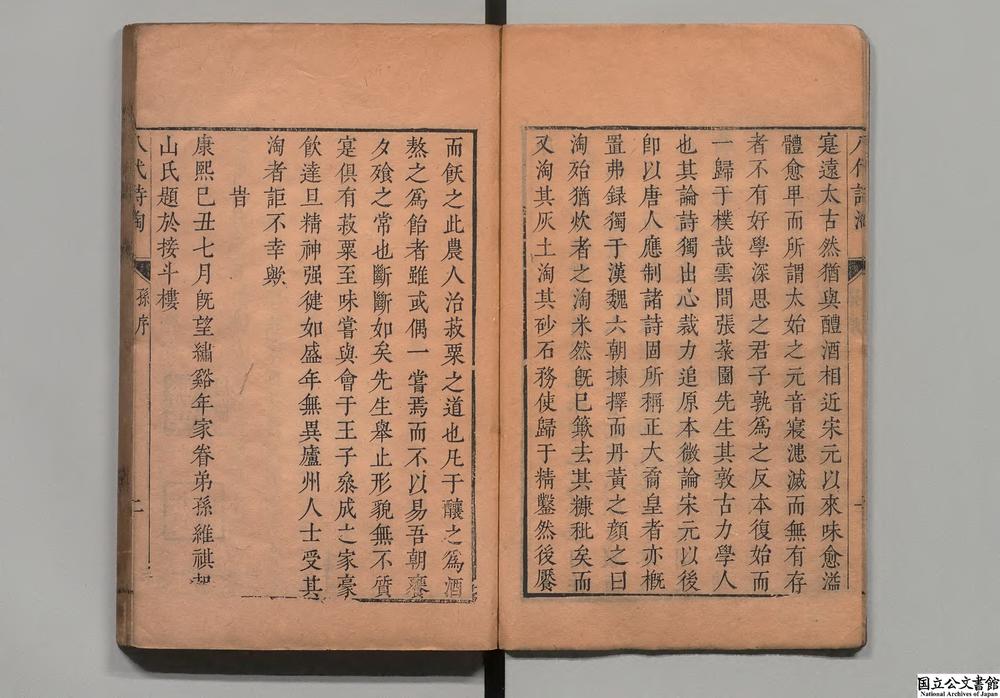 寔遠太古然猶與醴酒相近宋元以來味愈溢
體愈卑而所謂太始之元音寖漶滅而無有存
者不有好學深思之君子孰為之反本復始而
一歸于樸哉雲間張菉園先生其敦古力學人
也其論詩獨出心裁力追原本微論宋元以後
卽以唐人應制諸詩固所稱正大裔皇者亦槪
置弗録獨于漢魏六朝揀擇而丹黃之顔之曰
淘殆猶炊者之淘米然旣已簸去其糠秕矣而
又淘其灰土淘其砂石務使歸于精鑿然後饜
而飫之此農人治菽粟之道也凡于釀之為酒
熬之為飴者雖或偶一嘗焉而不以易吾朝饔
夕飱之常也斷斷如矣先生舉止形貌無不質
寔俱有菽粟至味嘗與會于王子叅成之家豪
飲達旦精神强健如盛年無異廬州人士受其
淘者詎不幸歟
旹
康熙己丑七月旣望繡谿年家眷弟孫維祺起
山氏題於接斗樓
八代詩淘
孫序
二
国立公文書館
National Archives of Japan